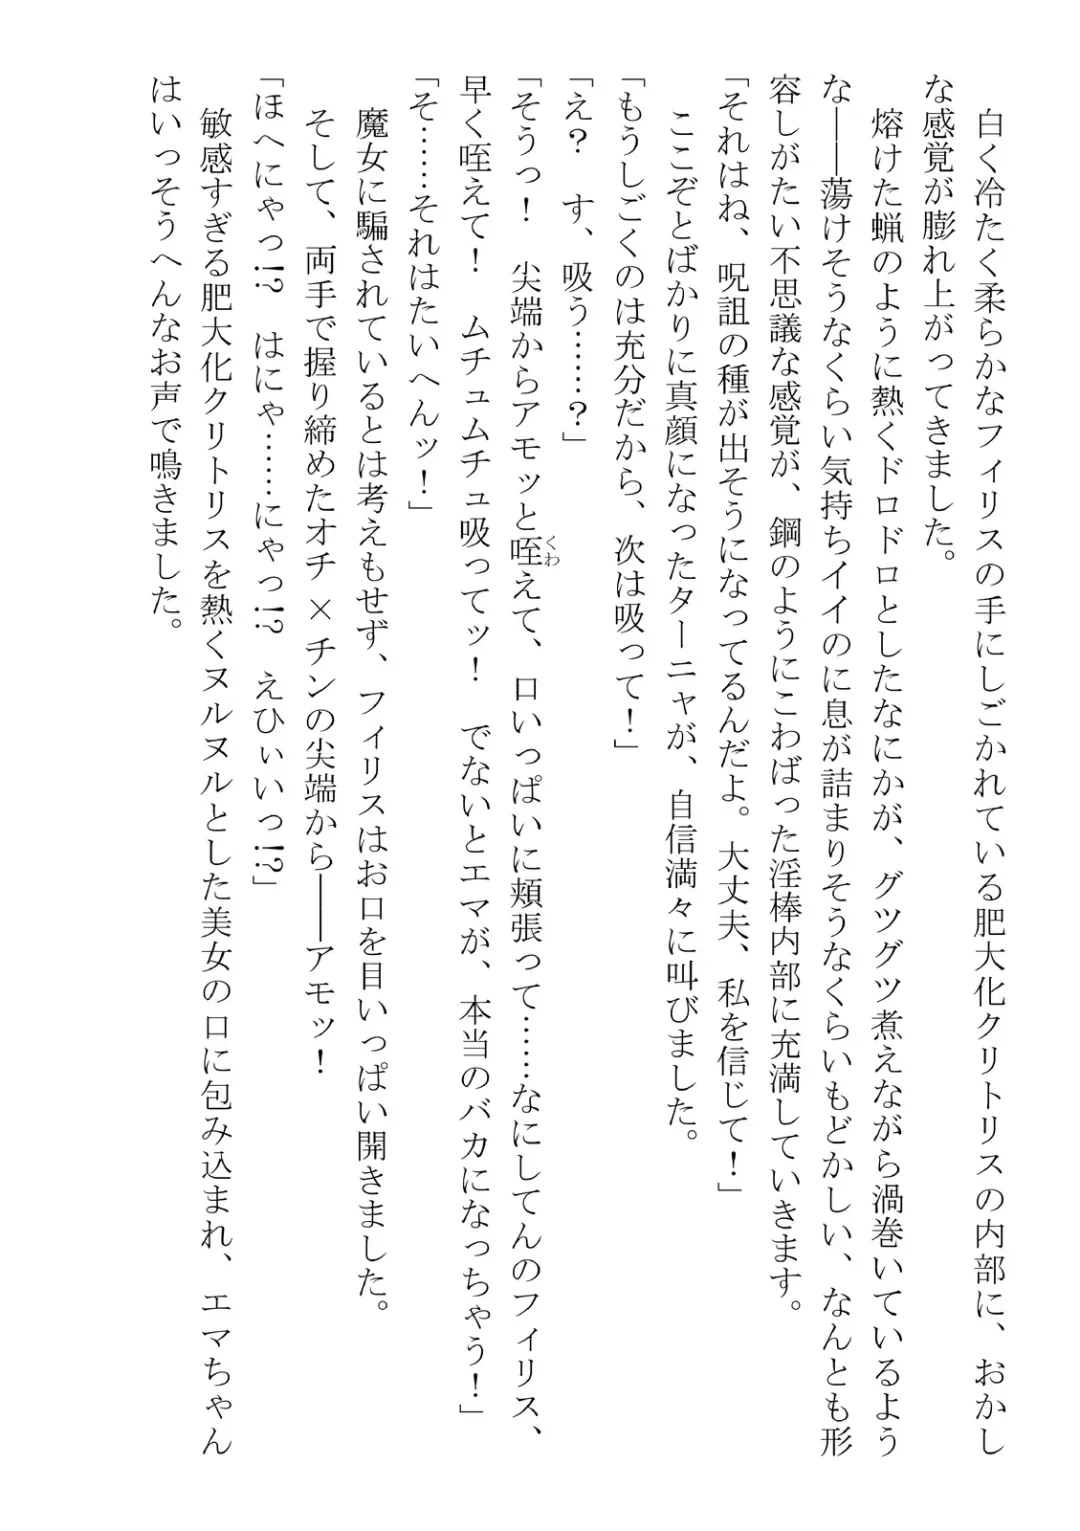 白く冷たく柔らかなフィリスの手にしごかれている肥大化クリトリスの内部に、おかし
な感覚が膨れ上がってきました。
熔けた蝋のように熱くドロドロとしたなにかが、グツグツ煮えながら渦巻いているよう
な――蕩けそうなくらい気持ちイイのに息が詰まりそうなくらいもどかしい、なんとも形
容しがたい不思議な感覚が、鋼のようにこわばった淫棒内部に充満していきます。
「それはね、呪詛の種が出そうになってるんだよ。大丈夫、私を信じて！」
ここぞとばかりに真顔になったターニャが、自信満々に叫びました。
「もうしごくのは充分だから、次は吸って！」
「え？　す、吸う……？」
「そうっ！　尖端からアモッと咥くわえて、口いっぱいに頬張って……なにしてんのフィリス、
早く咥えて！　ムチュムチュ吸ってッ！　でないとエマが、本当のバカになっちゃう！」
「そ……それはたいへんッ！」
魔女に騙されているとは考えもせず、フィリスはお口を目いっぱい開きました。
そして、両手で握り締めたオチ×チンの尖端から――アモッ！
「ほへにゃっ!?　はにゃ……にゃっ!?　えひぃいっ!?」
敏感すぎる肥大化クリトリスを熱くヌルヌルとした美女の口に包み込まれ、エマちゃん
はいっそうへんなお声で鳴きました。